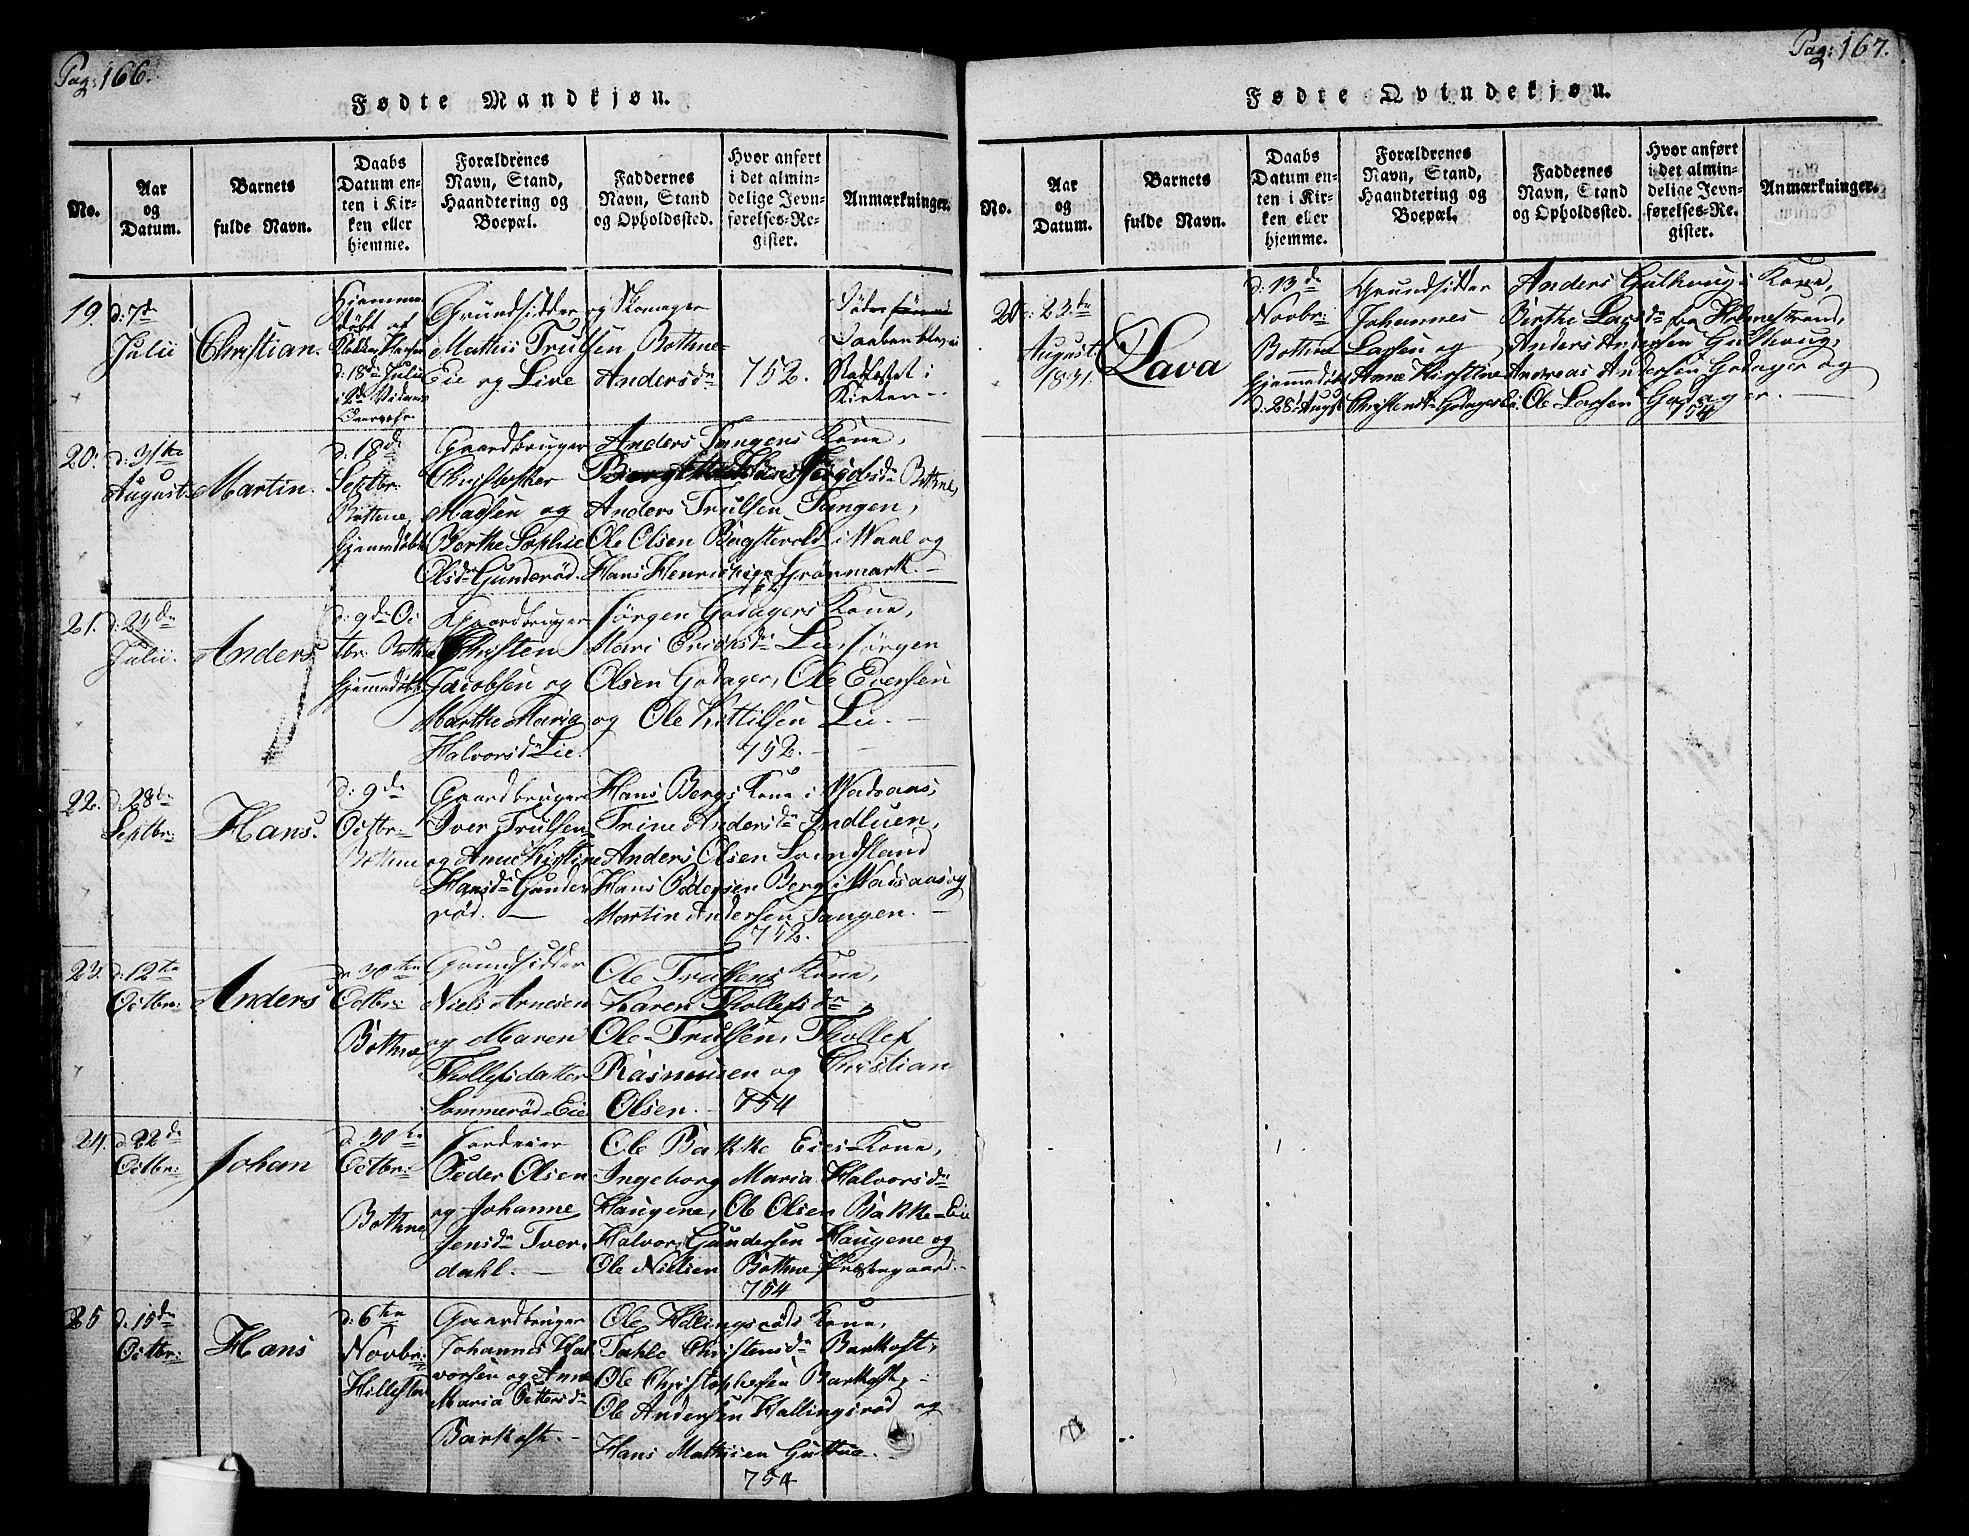 Pag: 166.
Fødte Mandkjøn.
No.
Aar
og
Datum.
Barnets
fulde Navn.
Daabs
Datum en-
ten i Kir-
ken eller
hjemme.
Forældrenes
Navn, Stand,
Haandtering og
Boepæl.
Faddernes
Navn, Stand
og Opholdssted.
Hvor anført
i det almin-
delige Jevn-
førelses-Re-
gister.
Anmærkninger.
19.
d: 7de
Julii
Christian.
Hjemme
døbt af
d: 18de Julii
Grundsidder og Skomager
Mathis Trulsen Bothne-
Eie og Live Andersdr
752.
Kirken.
20.
d: 31te
August
Martin.
d. 18de
Septbr:
Bothne
Hjemmedøbt
Gaardbruger
Christopher
Madsen og
Berthe Sophie
Olsdr Gunderød.
Anders Tangens Kone,
Bothne,
Anders Trulsen Tangen,
Ole Olsen i Vaale og
Hans Henrichsen Grønmark.
752
21.
d: 24de
Julii.
Anders
d: 9de Oc
tbr. Bothne
Hjemmedøbt
Gaardbruger
Christen
Jacobsen og
Marthe Maria
Halvorsdr Lie.
Jørgen Godagers Kone,
Mari Erichsdr Lie, Jørgen
Olsen Godager, Ole Evensen
og Ole Kittilsen Lie.
752.
22.
d. 28de
Septbr:
Hans.
d: 9de
Octbr:
Bothne
Gaardbruger
Iver Trulsen
og Anne Kirstine
Hansdr Gunde-
rød.
Hans Bergs Kone i Wadsaas,
Trine Andersdr
Anders Olsen Sundsland
Hans Pedersen Berg i Wadsaas og
Martin Andersen Tangen.
752.
23.
d: 12te
Octbr:
Anders
d. 30te
Octbr:
Bothne
Grundsidder
Niels Arnesen
og Maren
Thollefsdatter
Sommerød-Eie
Ole Trulsens Kone,
Karen Thollefsdr,
Ole Trulsen, Thollef
Rasmusen og Christian
Olsen.
754
24.
d. 22de
Octbr:
Johan
d. 30te
Octbr:
Bothne
Peder Olsen
og Johanne
Jensdr Tver-
dahl.
Ole Bakke Eies Kone,
Ingeborg Maria Halvorsdr
Haugene, Ole Olsen Bakke-Eie
Halvor Gundersen Haugene og
Ole Nielsen Bothne Præstegaard.
754
25
d. 15de
Octbr:
Hans
d: 6te
Novbr:
Hillestad
Gaardbruger
Johannes Hal
vorsen og Anne
Maria Pettersdr
Barkost.
Ole Hallingsrøds Kone,
Tahle Christensdr Barkost,
Ole Christophersen Barkost,
Ole Andersen Hallingsrød og
Hans Mathisen
754
Pag: 167.
Fødte Qvindekjøn.
No.
Aar
og
Datum.
Barnets
fulde Navn.
Daabs
Datum en-
ten i Kir-
ken eller
hjemme.
Forældrenes
Navn, Stand,
Haandtering og
Boepæl.
Faddernes
Navn, Stand
og Opholdssted.
Hvor anført
i det almin-
delige Jevn-
førelses-Re-
gister.
Anmærkninger.
20.
d: 23de
August
1831.
Lava
d: 13de
Novbr:
Bothne
Hjemmedøbt
d: 28 Augst
Grundsidder
Johannes
Larsen og
Anne Kirstine
Christensdr Godager Ei.
Anders Gulhaugs Kone,
Birthe Larsdr fra Holmestrand,
Anders Andersen Gulhaug,
Andreas Andersen Godager og
Ole Larsen Godager.
754